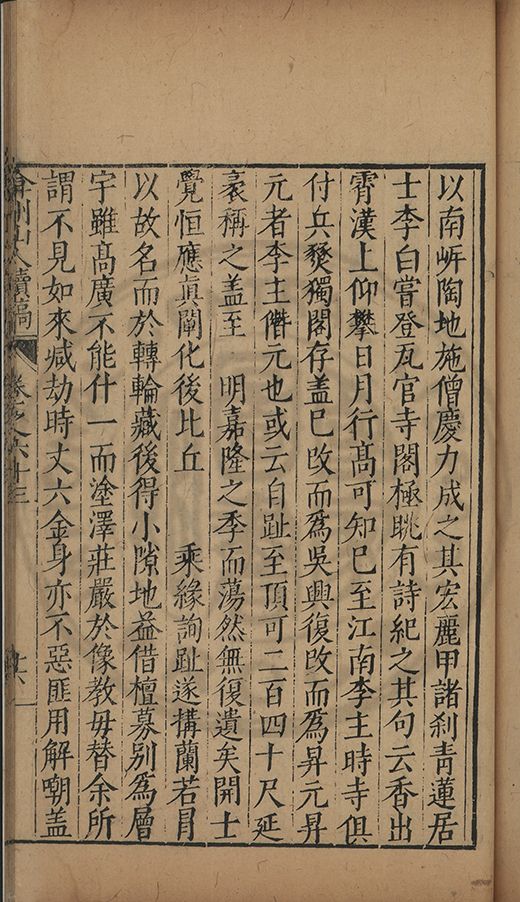 以南岓陶地施僧慶力成之其宏麗甲諸刹青蓮居
士李白嘗登瓦官寺閣極眺有詩紀之其句云香出
霄漢上仰攀日月行髙可知巳至江南李主時寺俱
付兵燹獨閣存盖巳改而爲吳興復改而爲昇元昇
元者李主僭元也或云自趾至頂可二百四十尺延
袤稱之盖至　明嘉隆之季而蕩然無復遺矣開士
覺恒應眞闡化後比丘　　乘緣詢趾遂搆蘭若冐
以故名而於轉輪藏後得小隙地益借檀募別爲層
宇雖髙廣不能什一而塗澤莊嚴於像教毋替余所
謂不見如來減劫時丈六金身亦不惡匪用解嘲盖
弇州山人續稿
卷之六十三